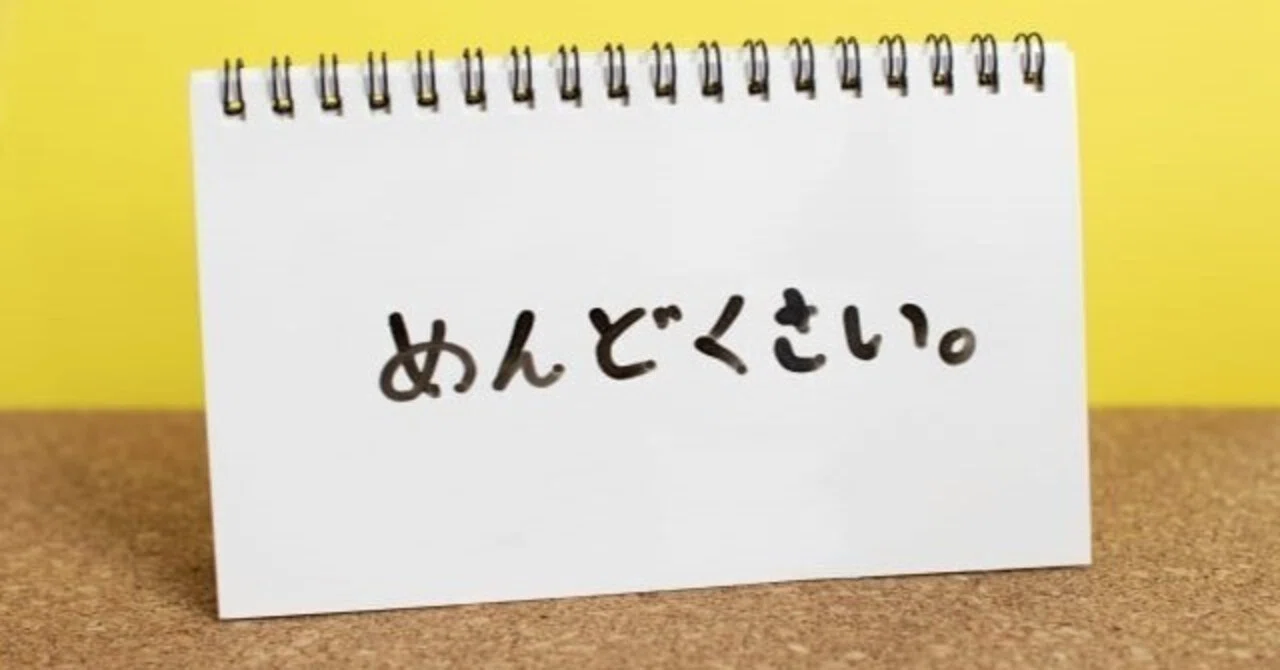 めんどくさい。